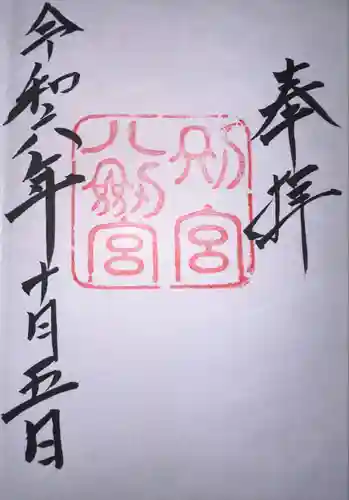 奉拝
別宮
八剱宮
令和六年十月五日